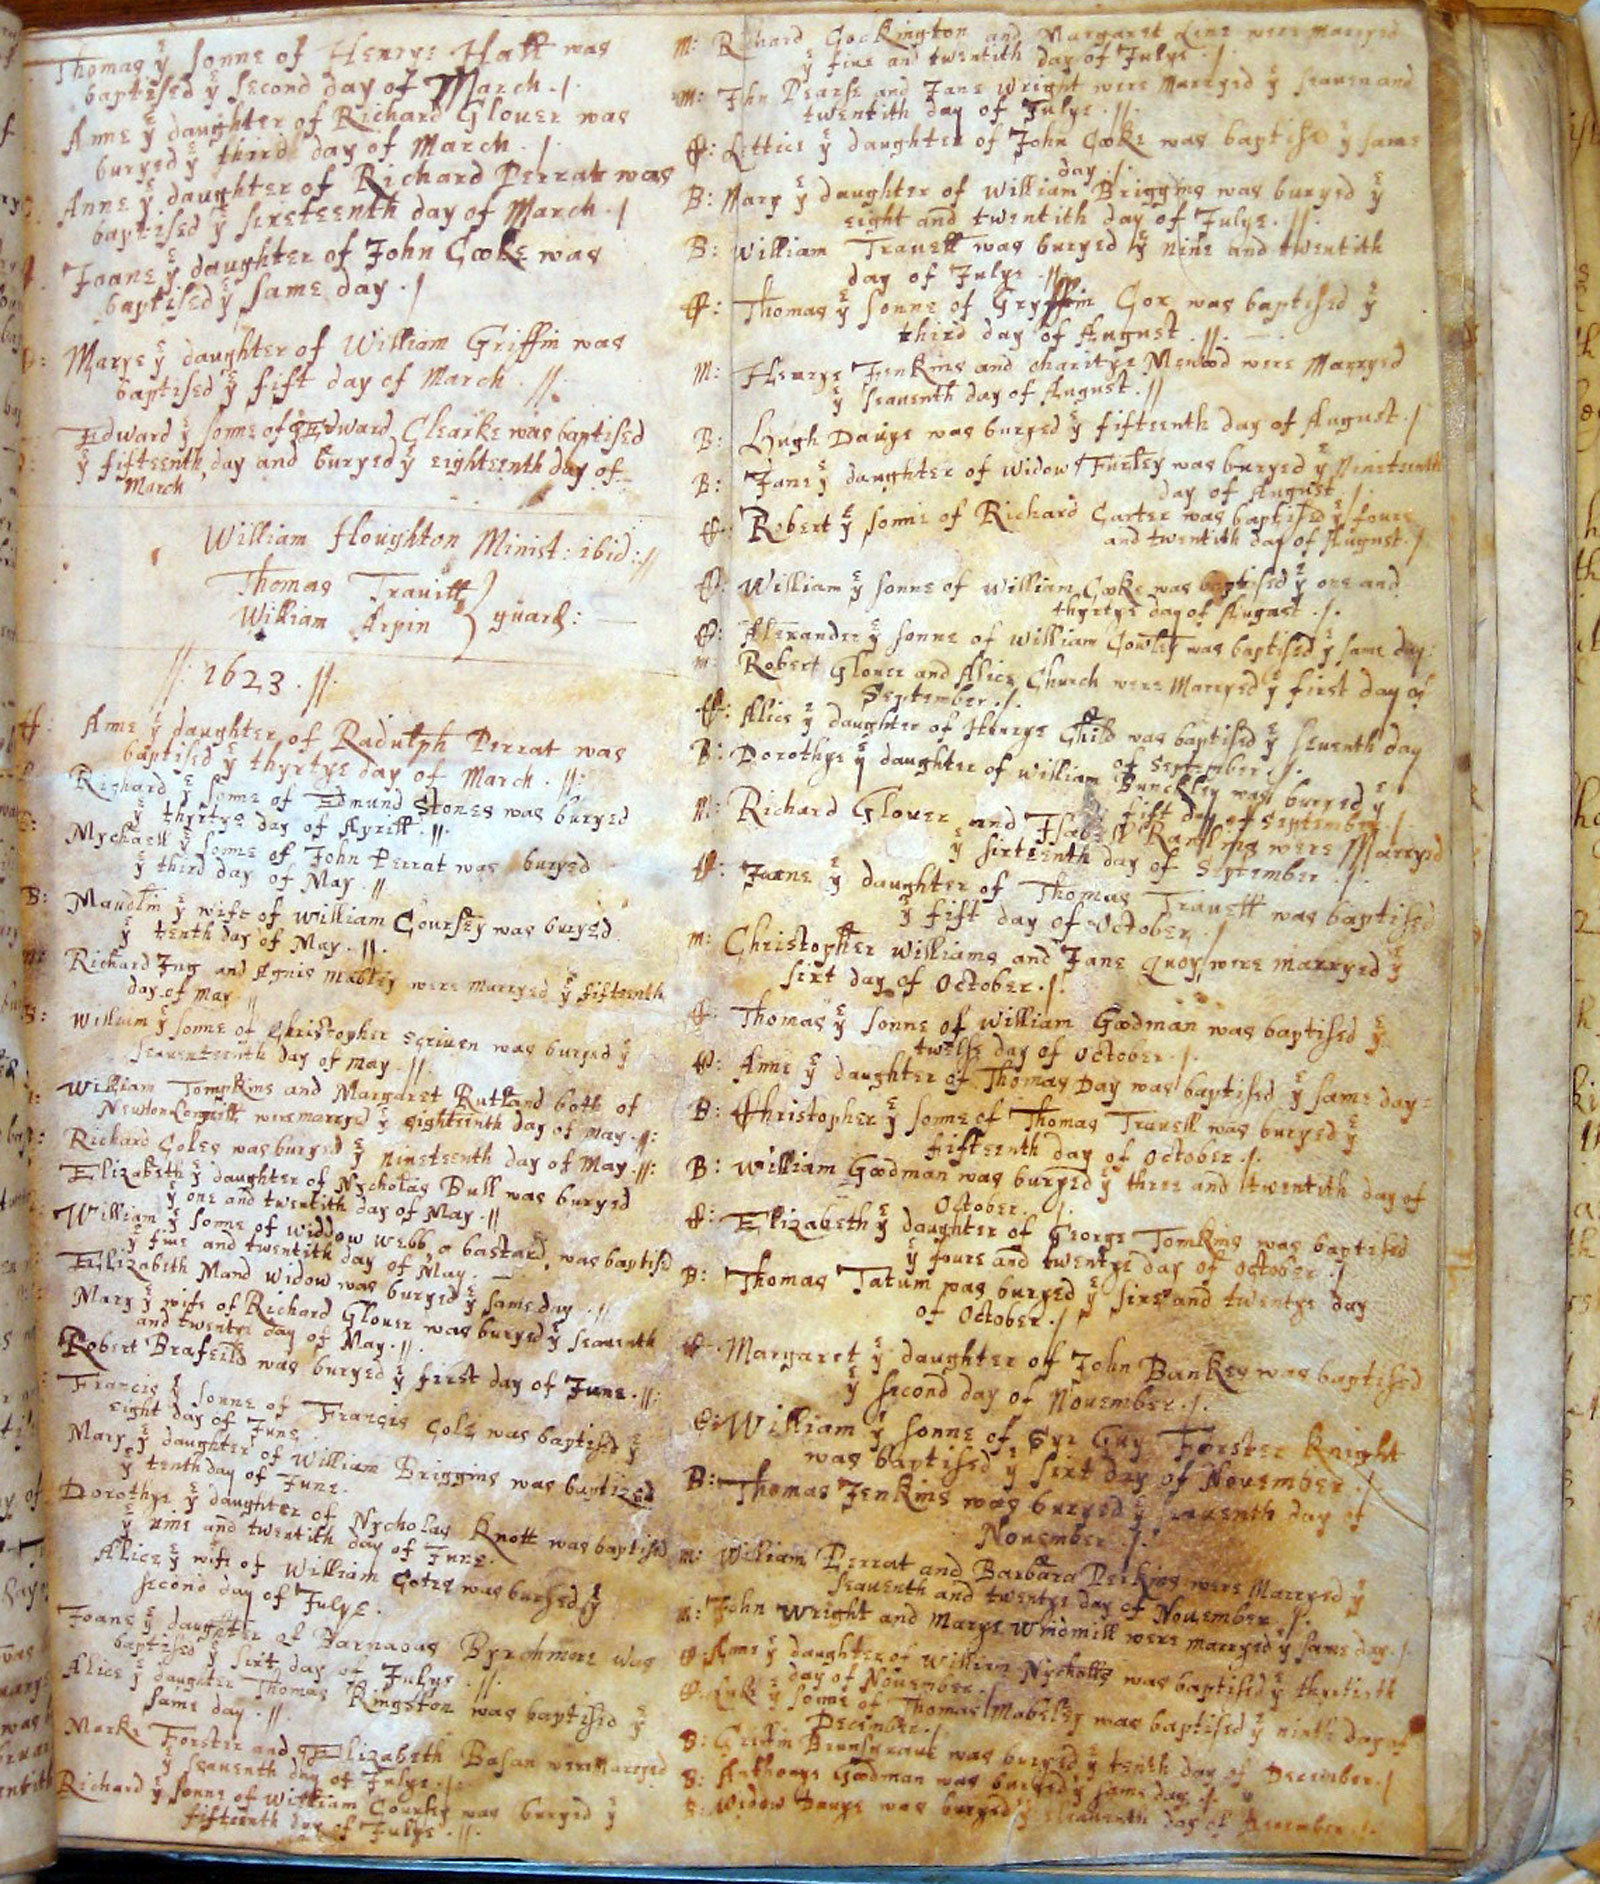 Thomas yͤ sonne of Henrye Hall was
baptised yͤ second day of March ./
Anne yͤ daughter of Richard Glouer was
buryed yͤ third day of March . /
Anne yͤ daughter of Richard Perrat was
baptised yͤ sixteenth day of March . /
Joane yͤ daughter of John Cooke was
baptised yͤ same day . /
Marye yͤ daughter of William Griffin was
baptised yͤ fift day of March . //.
Edward yͤ sonne of Edward Clearke was baptised
yͤ fifteenth day and buryed yͤ eighteenth day of
March
William Houghton Minist: ibid: //
Thomas Trauitt
William Arpin } guard:
//. 1623 . //.
ff: Anne yͤ daughter of Radulph Perrat was
baptised yͤ thyrtye day of March . //:
Richard yͤ sonne of Edmund Stones was buryed
yͤ thyrtye day of Aprill . //.
Mychaell yͤ sonne of John Perrat was buryed
yͤ third day of May . //
B: Maudlin yͤ wife of William Coursey was buryed
yͤ tenth day of May . //.
m: Richard Ing and Agnis Mabley were marryed yͤ fifteenth
day of May //
B: William yͤ sonne of Christopher Scriuen was buryed yͤ
seauenteenth day of May . //.
William Tompkins and Margaret Rutland both of
Newton Longuill were marryed yͤ eighteenth day of May . //:
Richard Coles was buryed yͤ nineteenth day of May . //:
Elizabeth yͤ daughter of Nycholas Bull was buryed
yͤ one and twentith day of May . //
William yͤ sonne of widdow Webb, a bastard, was baptised
yͤ fiue and twentith day of May .
Elizabeth Mand widow was buryed yͤ same day . //
Mary yͤ wife of Richard Glouer was buryed yͤ seauenth
and twentye day of May . //.
Robert Brafeild was buryed yͤ first day of June . //:
Francis yͤ sonne of Francis Cole was baptised yͤ
eight day of June .
Mary yͤ daughter of William Briggins was baptized
yͤ tenth day of June .
Dorothye yͤ daughter of Nycholas Knott was baptised
yͤ nine and twentith day of June .
Alice yͤ wife of William Cotes was buryed yͤ
second day of Julye .
Joane yͤ daughter of Barnabas Byrchmore was
baptised yͤ sixt day of Julye . //.
Alice yͤ daughter Thomas Kingston was baptised yͤ
same day . //.
Marke Forster and Elizabeth Basan were Marryed
yͤ seauenth day of Julye . /
Richard yͤ sonne of William Courley was buryed yͤ
fifteenth day of Julye . //.
m: Richard Cockington and Margaret Line were marryed
yͤ fiue and twentith day of Julye . /
m: John Pearse and Jane Wright were Marryed yͤ seauen and
twentith day of Julye . //.
ff: Lettice yͤ daughter of John Cooke was baptised yͤ same
day . /.
B: Mary yͤ daughter of William Briggins was buryed yͤ
eight and twentith day of Julye . //.
B: William Trauell was buryed yͤ nine and twentith
day of Julye . //.
ff: Thomas yͤ sonne of Gryffin Cox was baptised yͤ
third day of August . //.
m: Henrye Jenkins and charitye Mewood were Marryed
yͤ seauenth day of August . //
B: Hugh Dauye was buryed yͤ fifteenth day of August . /
B: Jane yͤ daughter of widow Furley was buryed yͤ Nineteenth
day of August . /.
ff: Robert yͤ sonne of Richard Carter was baptised yͤ foure
and twentith day of August . /.
ff: William yͤ sonne of William Cooke was baptised yͤ one and
thyrtye day of August . /.
ff: Alexander yͤ sonne of William Cowley was baptised yͤ same day:
m: Robert Glouer and Alice Church were Marryed yͤ first day of
September . /.
ff: Alice yͤ daughter of Henrye Child was baptised yͤ seuenth day
of September . /.
B: Dorothye yͤ daughter of William Bunckley was buryed yͤ
fift day of September . /.
M: Richard Glouer and Isabell Rawlins were Marryed
yͤ sixteenth day of September . /.
ff: Jane yͤ daughter of Thomas Trauell was baptised
yͤ fift day of October . /
m: Christopher Williams and Jane Quoy were marryed yͤ
sixt day of October . /.
ff: Thomas yͤ sonne of William Goodman was baptised yͤ
twelfe day of October . /.
ff: Anne yͤ daughter of Thomas Day was baptised yͤ same day =
B: Christopher yͤ sonne of Thomas Trauell was buryed yͤ
fifteenth day of October . /.
B: William Goodman was buryed yͤ three and twentith day of
October . /.
ff: Elizabeth yͤ daughter of George Tomkins was baptised
yͤ foure and twentye day of October . /
B: Thomas Tatum was buryed yͤ sixe and twentye day
of October . /
ff: Margaret yͤ daughter of John Bankes was baptised
yͤ second day of Nouember . /.
ff: William yͤ sonne of Syr Guy Forster Knight
was baptised yͤ sixt day of Nouember . /.
B: Thomas Jenkins was buryed yͤ seauenth day of
Nouember . /.
m: William Perrat and Barbara Perkins were Marryed yͤ
seauenth and twentye day of Nouember . /.
m: John Wright and Marye Windmill were marryed yͤ same day . /.
ff: Anne yͤ daughter of William Nycholls was baptised yͤ thyrtieth
day of Nouember .
ff: Luke yͤ sonne of Thomas Mabeley was baptised yͤ ninth day of
December . /.
B: was buryed yͤ tenth day of December . /
B: Anthonye Goodman was buryed yͤ same day . /.
B: Widow Dauye was buryed yͤ eleauenth day of December . /.